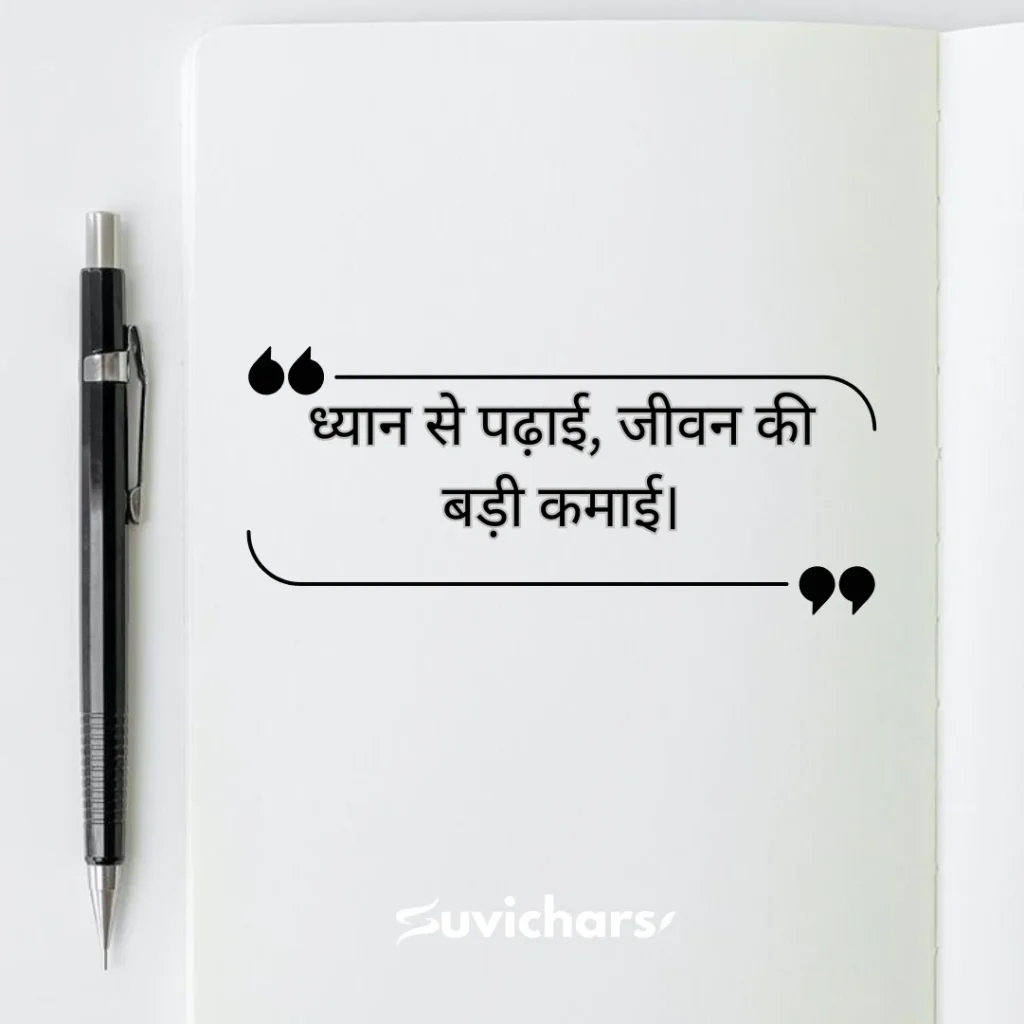 ध्यान से पढ़ाई, जीवन की
बड़ी कमाई।
Suvichars